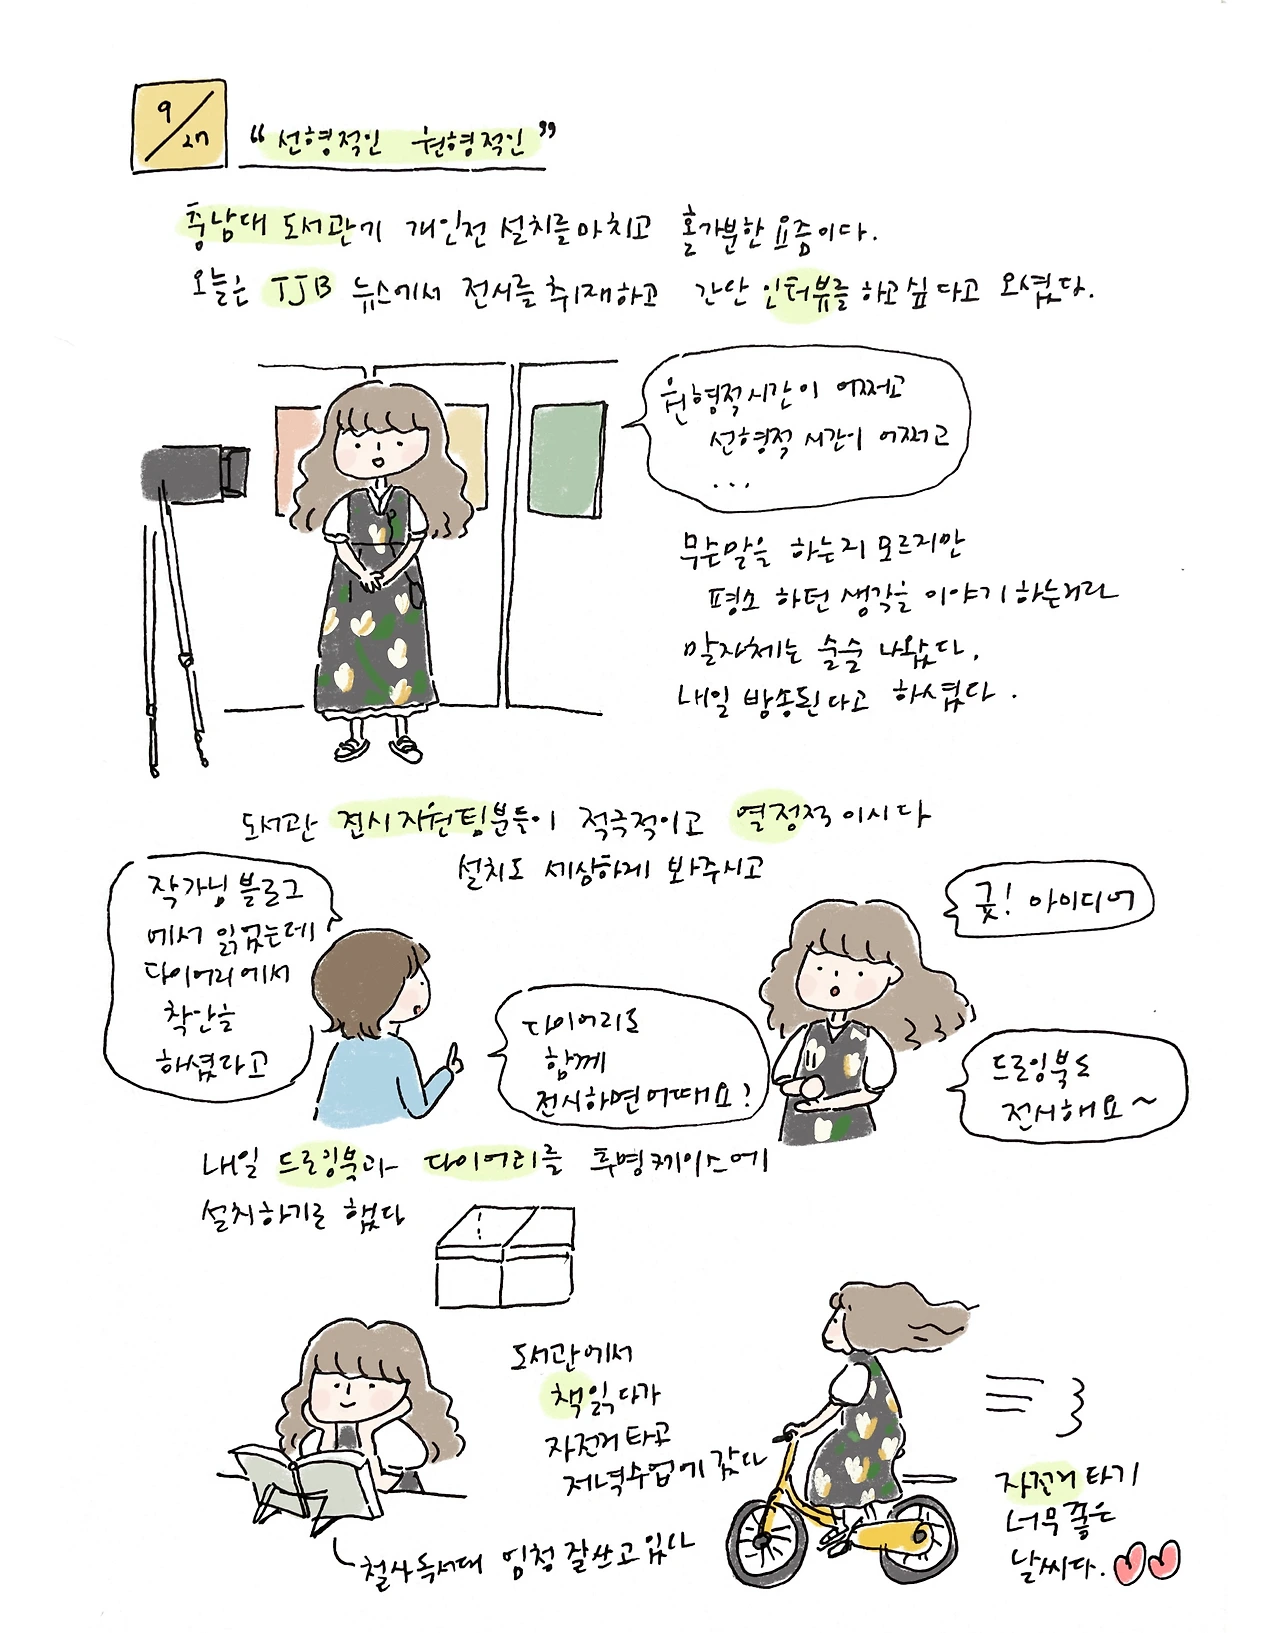 9/27
“선형적인 원형적인”
충남대 도서관 개인전 설치를 마치고 홀가분한 요즘이다.
오늘은 TJB 뉴스에서 전시를 취재하고 간단 인터뷰를 하고싶다고 오셨다.
원형적시간이 어쩌고
선형적 시간이 어쩌고
...
무슨말을 하는지 모르지만
평소 하던 생각을 이야기 하는거라
말자체는 술술 나왔다.
내일 방송된다고 하셨다.
도서관 전시지원팀분들이 적극적이고 열정적이시다
설치도 세심하게 봐주시고
작가님 블로그
에서 읽었는데
다이어리에서
착안을
하셨다고
다이어리도
함께
전시하면어때요?
굿! 아이디어
드로잉북도
전시해요~
내일 드로잉북과 다이어리를 투명케이스에
설치하기로 했다
도서관에서
책읽다가
자전거타고
저녁수업에 갔다
철사독서대 엄청 잘쓰고있다
자전거타기
너무좋은
날씨다.